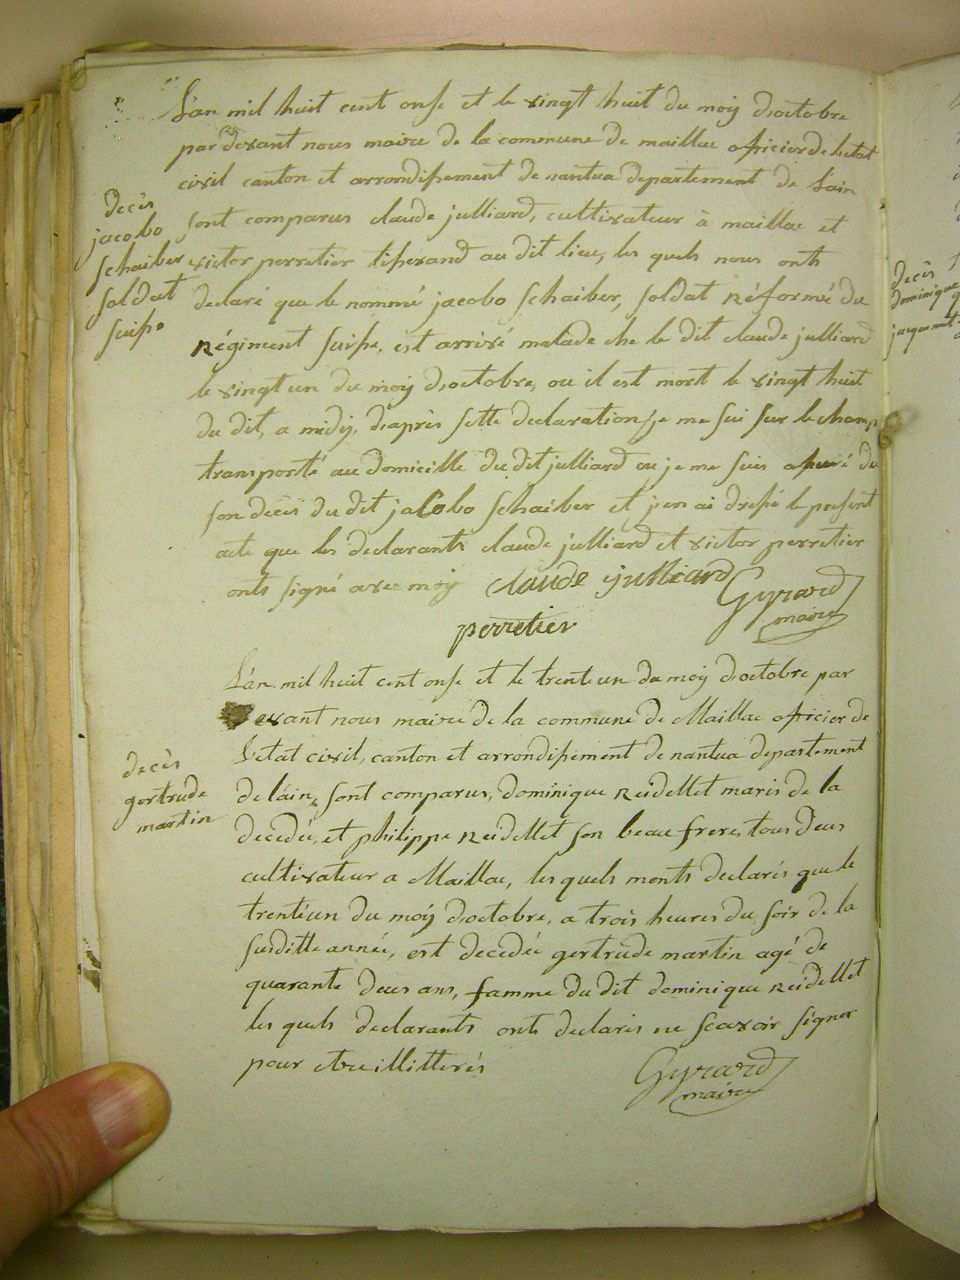 L'an mil huit cent onse et le vingt huit du moy doctobre
par devant nous maire de la commune de maillac oficier de letat
civil canton et arrondissement de nantua departement de lain
sont comparus claude julliard, cultivateur à maillac et
victor perretier tisserand au dit lieu, les quels nous onts
declaré que le nommé jacobo schaiber, soldat réformé du
Régiment suisse, est arrivé malade che le dit claude julliard
le vingt un du moy doctobre, ou il est mort le vingt huit
du dit, a midy, daprès sette declaration, je me sui sur le champ
transporté au domicille du dit julliard ou je me suis du
son decès du dit jacobo schaiber et jen ai dressé le present
acte que les declarants claude julliard et victor perretier
onts signé avec moy claude julliard Gyrard
maire
perretier
decès
jacobo
schaiber
soldat
suisse
L'an mil huit cent onse et le trente un du moy doctobre par
devant nous maire de la commune de Maillac oficier de
L'etat civil, canton et arrondissement de nantua departement
de láin, sont comparus, dominique Reidellet maris de la
decedée, et philippe Reidellet son beau frere, tous deus
cultivateur a Maillac, les quels monts declarés que le
trente un du moy doctobre, a trois heures du soir de la
susditte année, est decedée gertrude martin agé de
quarante deus ans, famme du dit dominique Reidellet
les quels declarants onts declarés ne scavoir signer
pour etre illitterés
Gyrard
maire
decès
gertrude
martin
decès
dominique